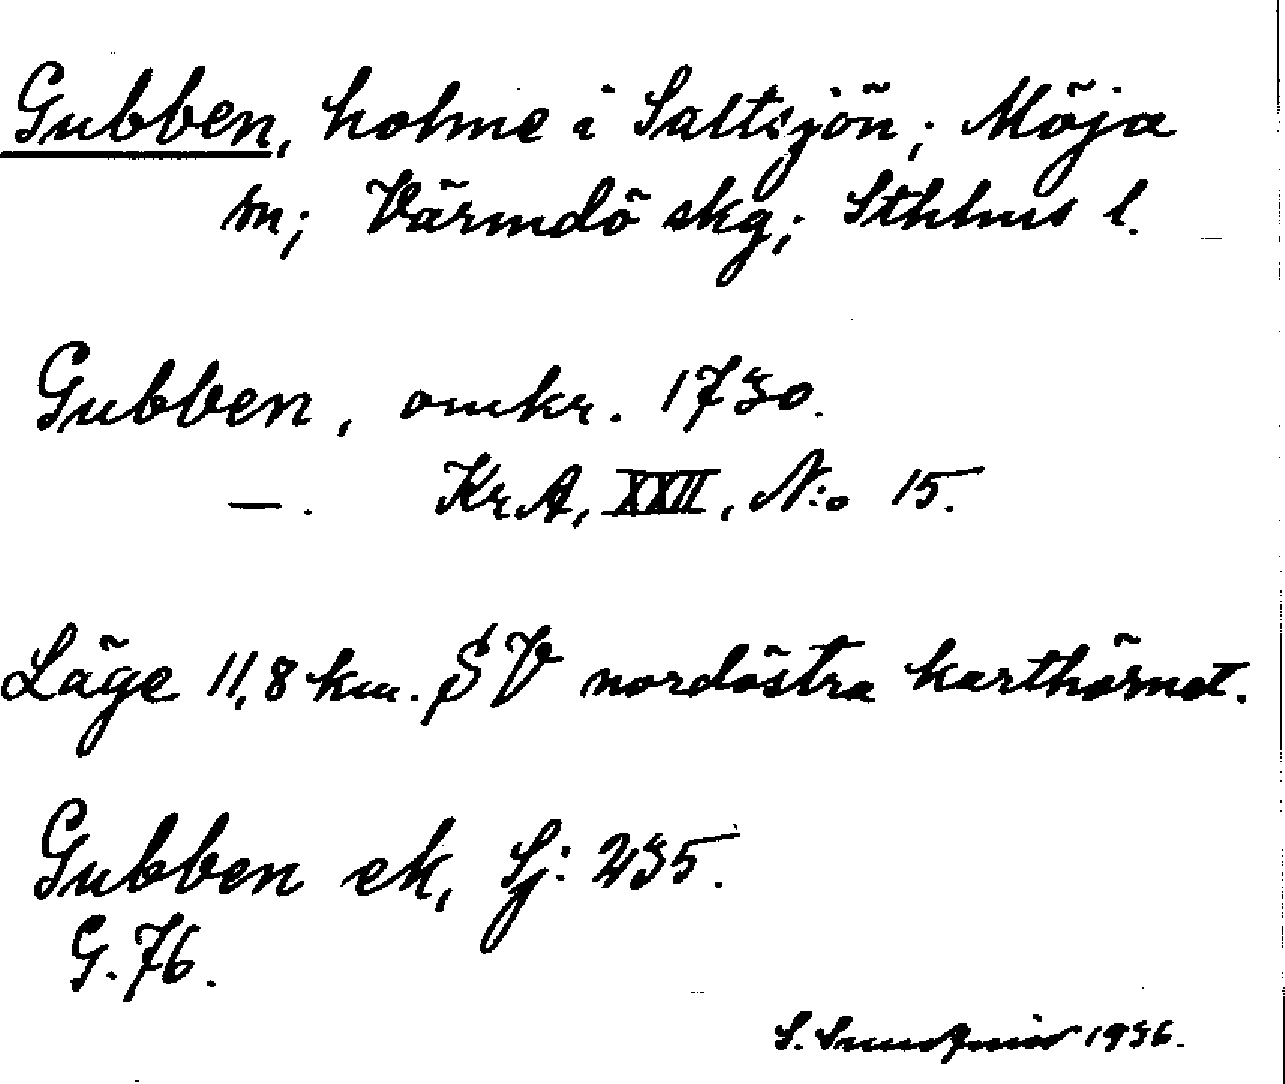 Gubben, holme i Saltsjön; Möja
sn; Värmdö skg; Sthlms l.
Gubben, omkr. 1730.
— . Kr.A, XXII, N:o 15.
Läge 11,8 km. SV nordöstra karthörnet.
Gubben ek, Sj: 235.
G. 76.
S. 1936.